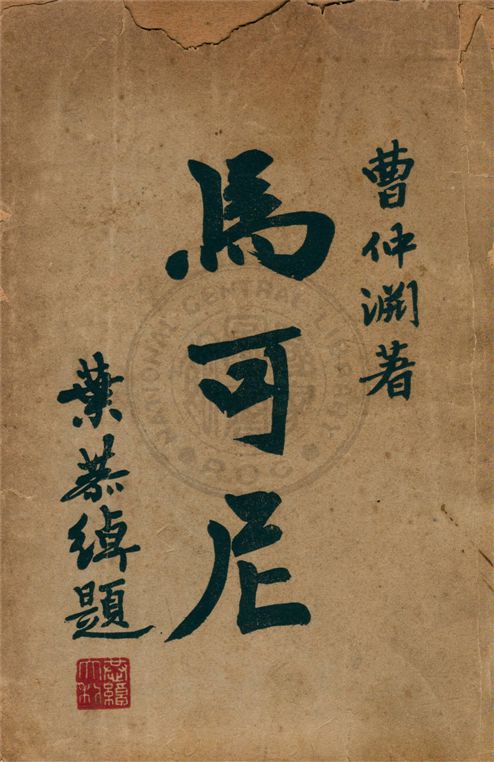 曹仲淵著
馬可尼
葉恭綽題
NATIONAL CENTRAL LIBRARY
ROC